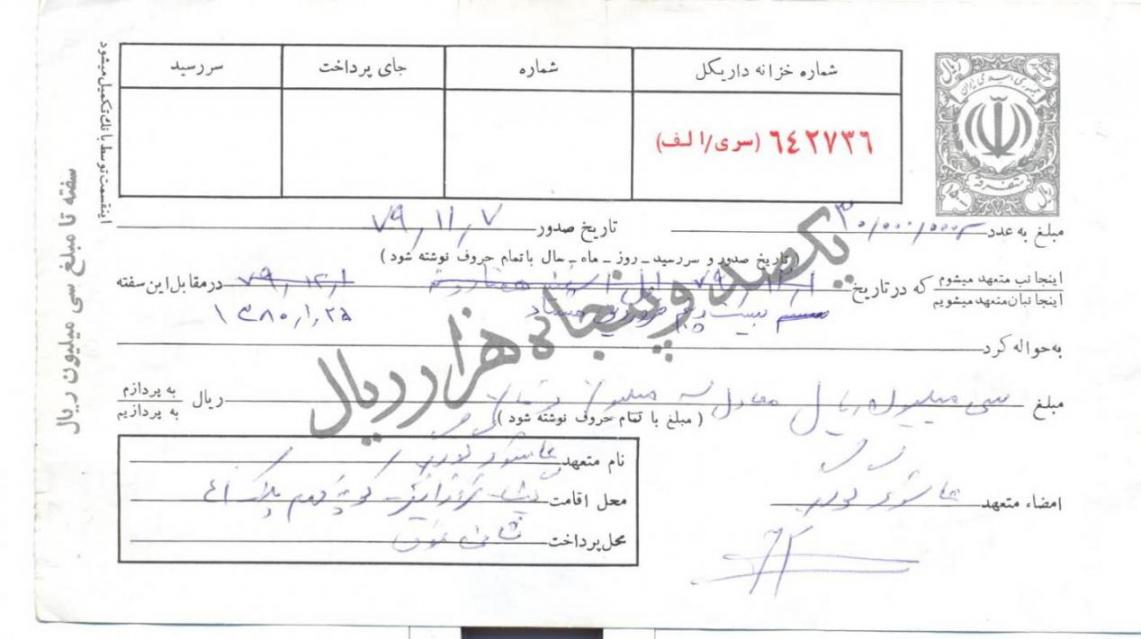 شماره خزانه داریکل
شماره
جای پرداخت
سررسید
۶۴۲۷۳۶ (سری/الف)
اینقسمت توسط بانک تکمیل میشود
سفته تا مبلغ سی میلیون ریال
جمهوری اسلامی ایران
متفرقه
ریال
مبلغ به عدد ۳۰/۰۰۰/۰۰۰
تاریخ صدور ۷۹/۱۱/۷
(تاریخ صدور و سررسید ـ روز ـ ماه ـ حال باتمام حروف نوشته شود)
یکصد و پنجاه هزار ریال
اینجانب متعهد میشوم
اینجانبان متعهد میشویم
که در تاریخ ۷۹/۱۲/۱ ۷۹/۱۲/۱ در مقابل این سفته
۱۳۸۰/۱/۲۵
به حواله کرد
مبلغ سی میلیون ریال معادل سه میلیون تومان ریال
به پردازم
به پردازیم
(مبلغ با تمام حروف نوشته شود)
نام متعهد
محل اقامت
محل پرداخت نشانی فوق
امضاء متعهد